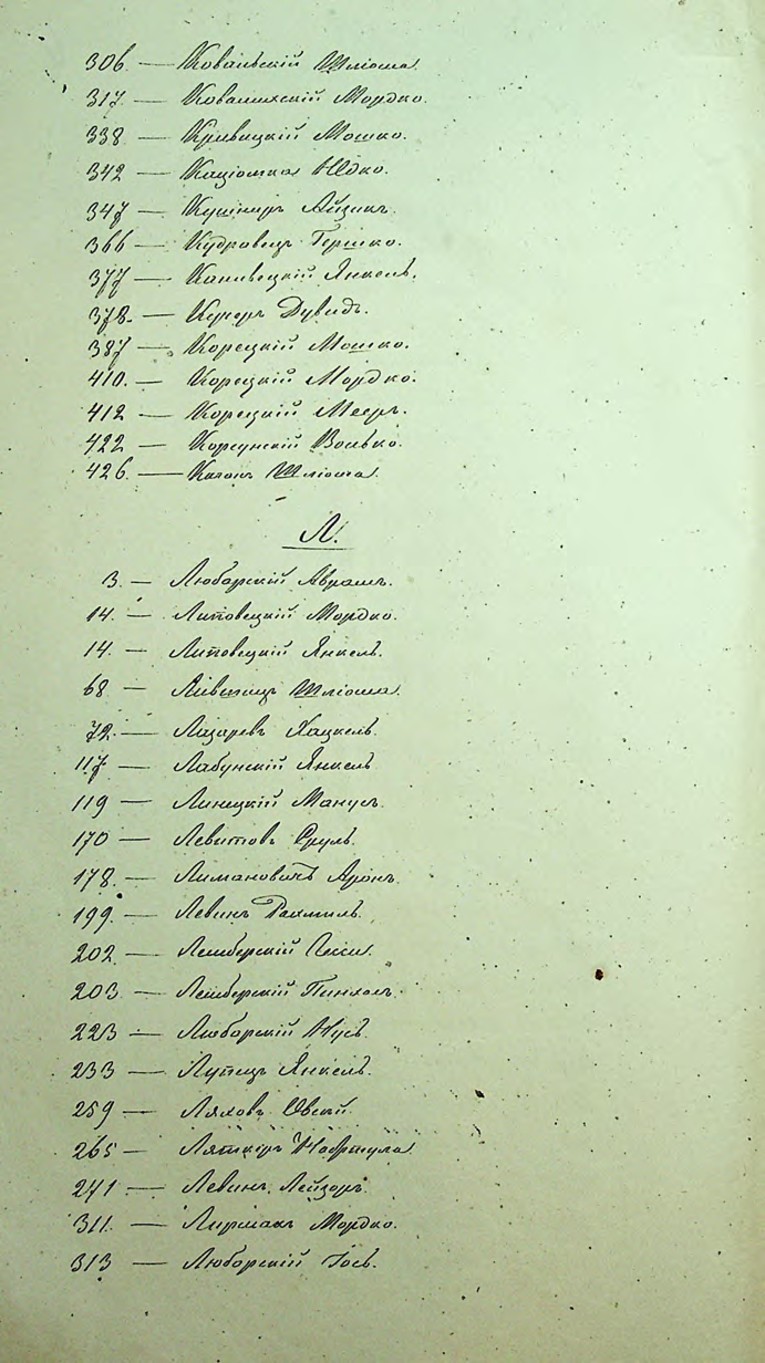 306. — Ковальскій Шліома.
317 — Ковалихскій Мордко.
338 — Кривицкій Мошко.
342 — Юдко.
347 — Кушниръ Айзикъ.
366 — Кудровецъ Гершко.
377 — Каневецкій Янкель.
378. — Дувидъ.
387 — Корецкій Мошко.
410. — Корецкій Мордко.
412 — Корецкій Мееръ.
422 — Корсунскій Волько.
426. — Каганъ Шліома.
Л.
3. — Любарскій Аврамъ.
14. — Липовецкій Мордко.
14. — Липовецкій Янкель.
68 — Лившицъ Шліома.
72. — Лазаревъ Хацкель.
117 — Лабунскій Янкель
119 — Линецкій Манусъ.
170 — Левитовъ Сруль.
178. — Лимановичъ Аронъ.
199. — Левинъ Рахмиль.
202 — Лемберскій
203 — Лемберскій Пинхасъ.
223 — Любарскій Нусь.
233 — Лупецъ Янкель.
259 — Ляховъ Овсей.
265 — Нафтула.
271 — Левинъ Лейзоръ.
311. — Лирмакъ Мордко.
313 — Любарскій Іось.